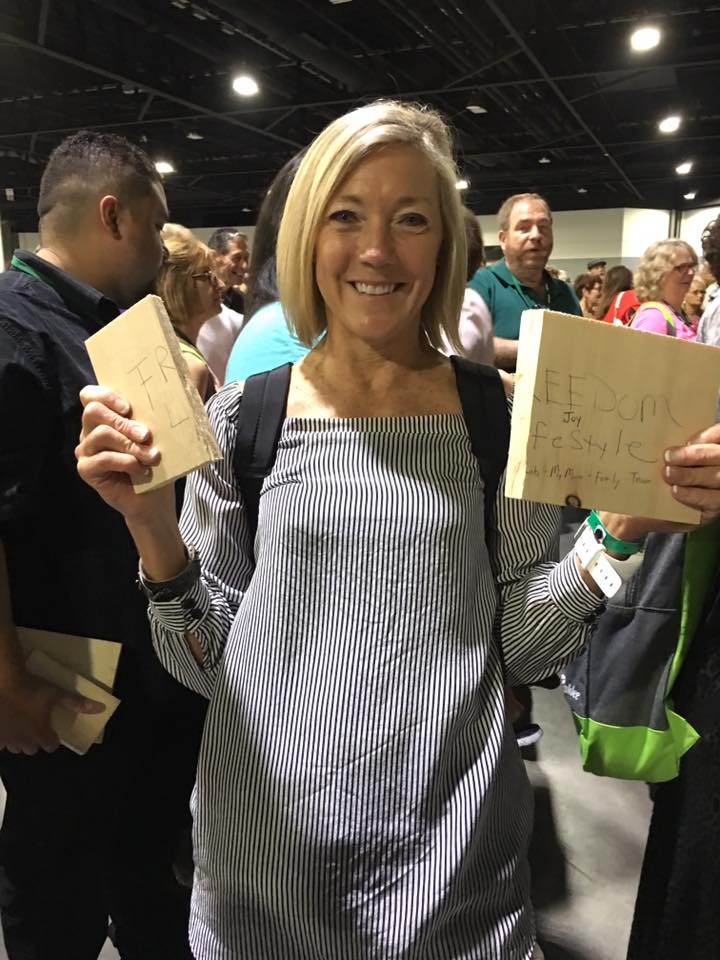 FR
L
EEDom
Joy
feStyle
+ My Mom + Family